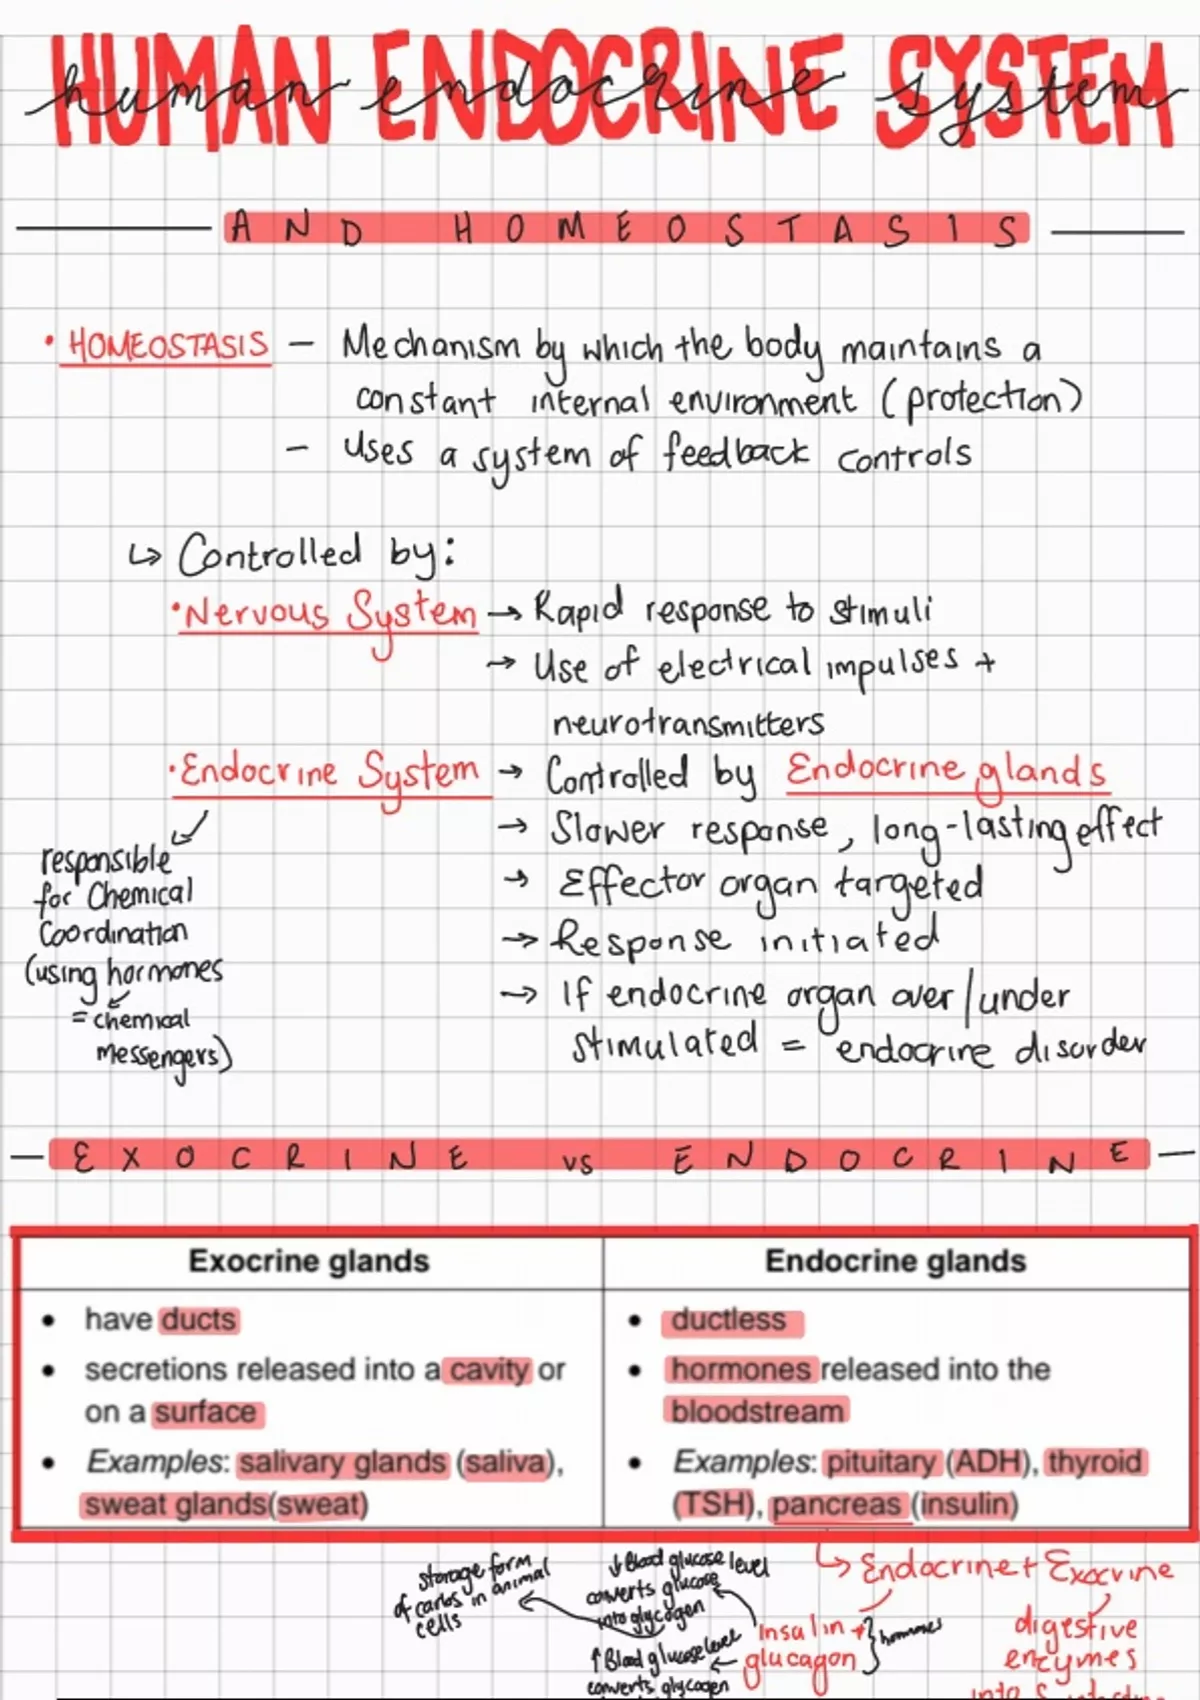 HUMAN ENDOCRINE SYSTEM
human endocrine system
AND HOMEOSTASIS
• HOMEOSTASIS – Mechanism by which the body maintains a
constant internal environment (protection)
– Uses a system of feedback controls
↳ Controlled by:
• Nervous System → Rapid response to stimuli
→ Use of electrical impulses +
neurotransmitters
• Endocrine System → Controlled by Endocrine glands
→ Slower response, long-lasting effect
→ Effector organ targeted
→ Response initiated
→ If endocrine organ over/under
stimulated = endocrine disorder
responsible
for Chemical
Coordination
(using hormones
= chemical
messengers)
EXOCRINE vs ENDOCRINE
Exocrine glands
• have ducts
• secretions released into a cavity or
on a surface
• Examples: salivary glands (saliva),
sweat glands(sweat)
Endocrine glands
• ductless
• hormones released into the
bloodstream
• Examples: pituitary (ADH), thyroid
(TSH), pancreas (insulin)
↳ Endocrine + Exocrine
storage form
of carbs in animal
cells
↓ Blood glucose level
converts glucose
into glycogen
↑ Blood glucose level
converts glycogen
insulin →
glucagon
} hormones
digestive
enzymes
into